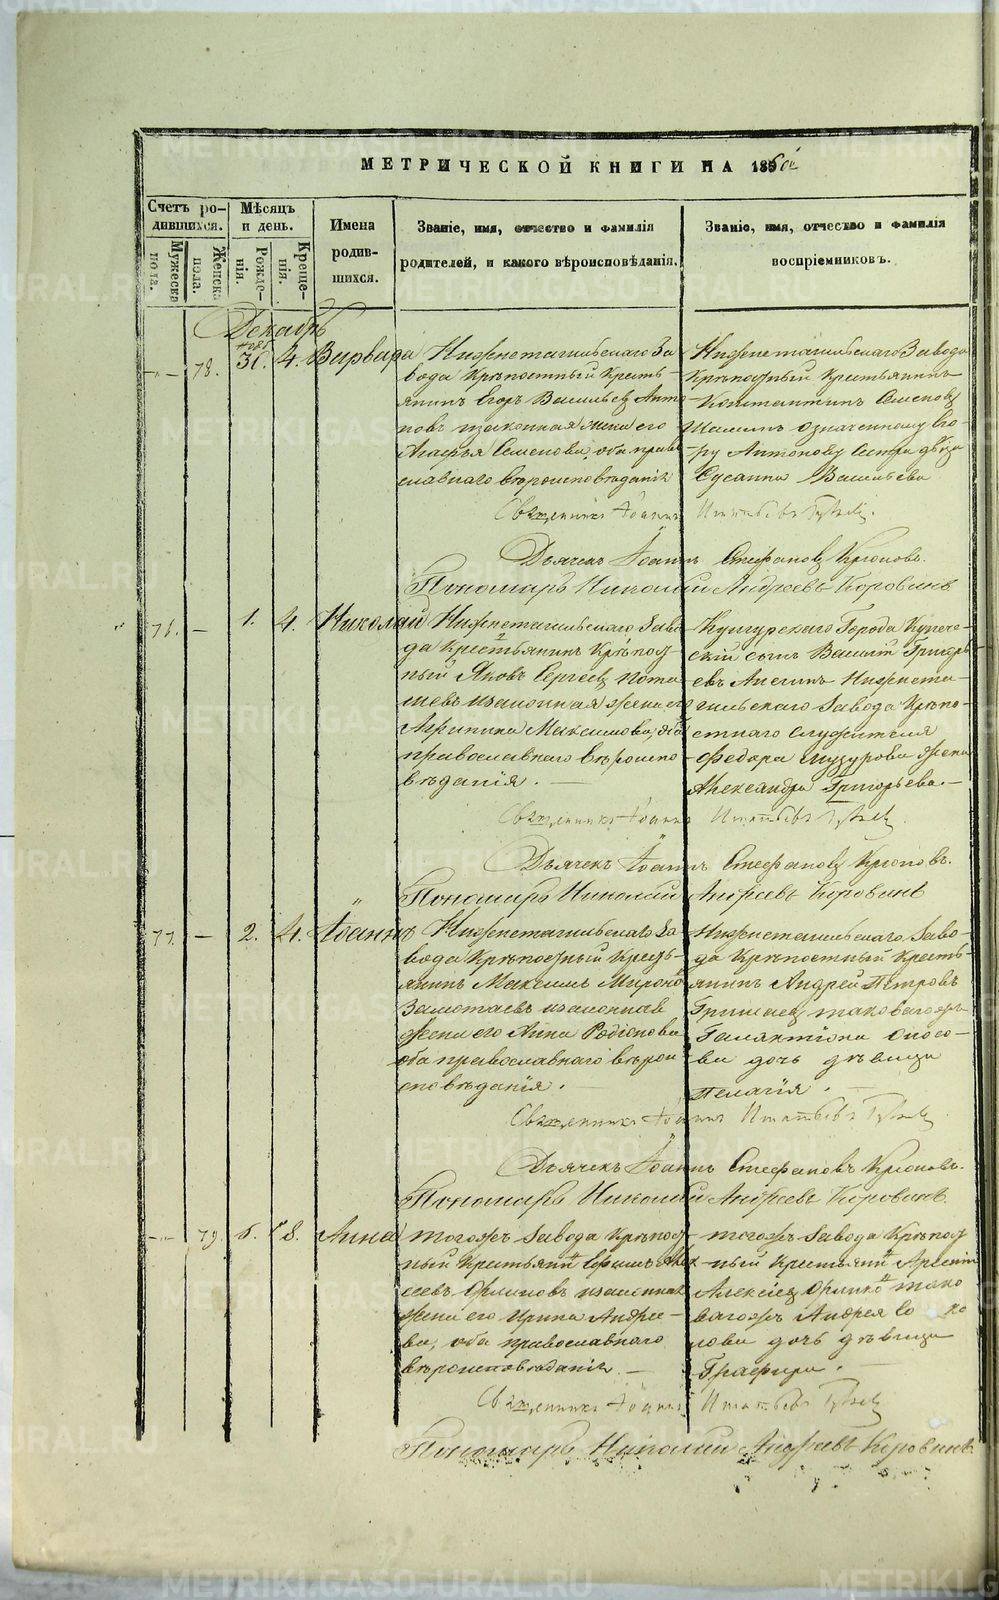 МЕТРИЧЕСКОЙ КНИГИ НА 1860й
Счетъ родившихся.
Мужеска пола.
Женска пола.
Мѣсяцъ и день.
Рожденія.
Крещенія.
Имена родившихся.
Званіе, имя, отчество и фамилія
родителей, и какого вѣроисповѣданія.
Званіе, имя, отчество и фамилія
воспріемниковъ.
Декабрь
78. 30. 4. Варвара
Нижнетагильскаго За
вода Крѣпостный Кресть-
янинъ Егоръ Васильевъ Анто
новъ и законная жена его
Агафья Семенова, оба право
славнаго вѣроисповѣданія
Нижнетагильскаго Завода
Крѣпостный Крестьянинъ
Константинъ Семеновъ
означенному Его-
ру Антонову Сестра дѣвица
Сусанна Васильева
Священникъ Іоаннъ Игнатьевъ
Дьячекъ Іоаннъ Стефановъ Крюковъ.
Пономарь Николай Андреевъ Коровинъ
76. — 1. 4. Николай
Нижнетагильскаго Заво-
да Крестьянинъ Крѣпост
ный Яковъ Сергеевъ Пота
шевъ и законная жена его
Агрипина Максимова, оба
православнаго вѣроиспо-
вѣданія. —
Кунгурскаго Города Купече-
скій сынъ Василій Григорь
евъ Нижнета-
гильскаго Завода Крѣпо-
стнаго служителя
Федора Мизурова жена
Александра Григорьева. —
Священникъ Іоаннъ Игнатьевъ
Дьячекъ Іоаннъ Стефановъ Крюковъ.
Пономарь Николай Андреевъ Коровинъ
77. — 2. 4. Іоаннъ
Нижнетагильскаго За
вода Крѣпостный Кресть-
янинъ Максимъ Мироновъ
Замотаевъ и законная
жена его Анна Родіонова
оба православнаго вѣрои
споведанія.
Нижнетагильскаго Заво-
да Крѣпостный Кресть-
янинъ Андрей Петровъ
таковагожъ
Галактіона
ва дочь дѣвица
Пелагія.
Священникъ Іоаннъ Игнатьевъ
Дьячекъ Іоаннъ Стефановъ Крюковъ.
Пономарь Николай Андреевъ Коровинъ.
79. 6. 8. Анна
тогожъ Завода Крѣпост
ный Крестьянинъ Ефимъ Алек
сеевъ и законная
жена его Ирина Андрее-
ва, оба православнаго
вѣроисповѣданія —
тогожъ Завода Крѣпост
ный Крестьянинъ Арсеній
Алексіевъ тако
вагожъ Андрея Со ко
лова дочь дѣвица
Глафира.
Священникъ Іоаннъ Игнатьевъ
Пономарь Николай Андреевъ Коровинъ
METRIKI.GASO-URAL.RU